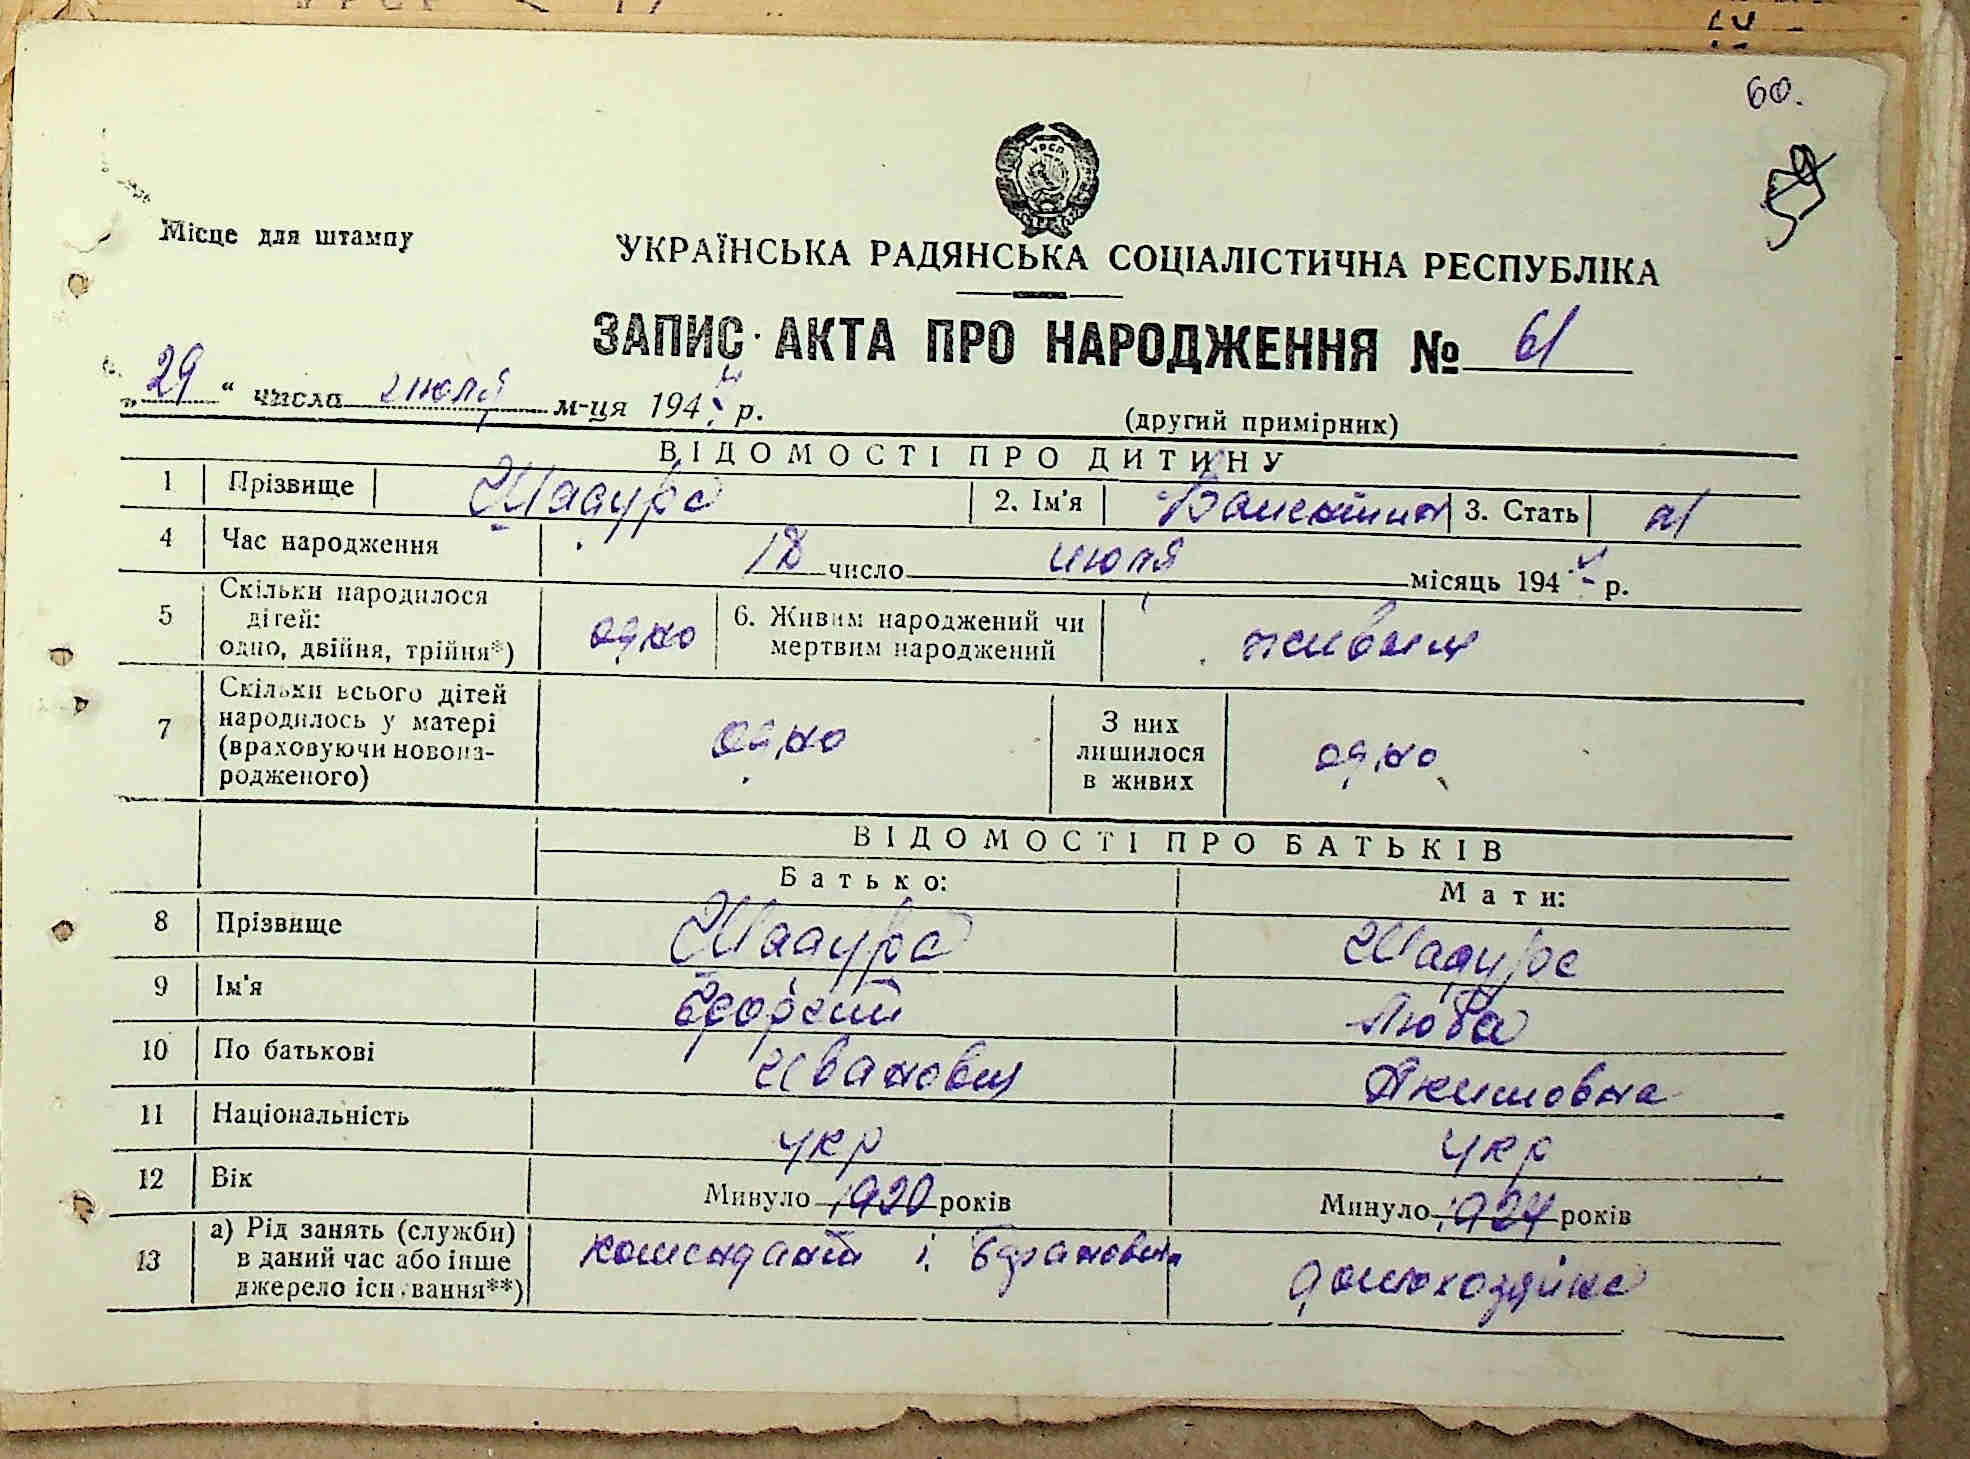 60.
УРСР
Місце для штампу
УКРАЇНСЬКА РАДЯНСЬКА СОЦІАЛІСТИЧНА РЕСПУБЛІКА
ЗАПИС АКТА ПРО НАРОДЖЕННЯ № 61
„29“ числа июля м-ця 1944 р.
(другий примірник)
ВІДОМОСТІ ПРО ДИТИНУ
1 Прізвище Шааура 2. Ім'я Валентина 3. Стать
4 Час народження 18 число июля місяць 1944 р.
5 Скільки народилося
дітей:
одно, двійня, трійня*) одно 6. Живим народжений чи
мертвим народжений живым
7 Скільки всього дітей
народилось у матері
(враховуючи новона-
родженого) одно З них
лишилося
в живих одно
ВІДОМОСТІ ПРО БАТЬКІВ
Батько: Мати:
8 Прізвище Шааура Шааура
9 Ім'я Люба
10 По батькові Иванович Акимовна
11 Національність укр укр
12 Вік Минуло 1920 років Минуло 1924 років
13 а) Рід занять (служби)
в даний час або інше
джерело існування**) комендант домохозяйка